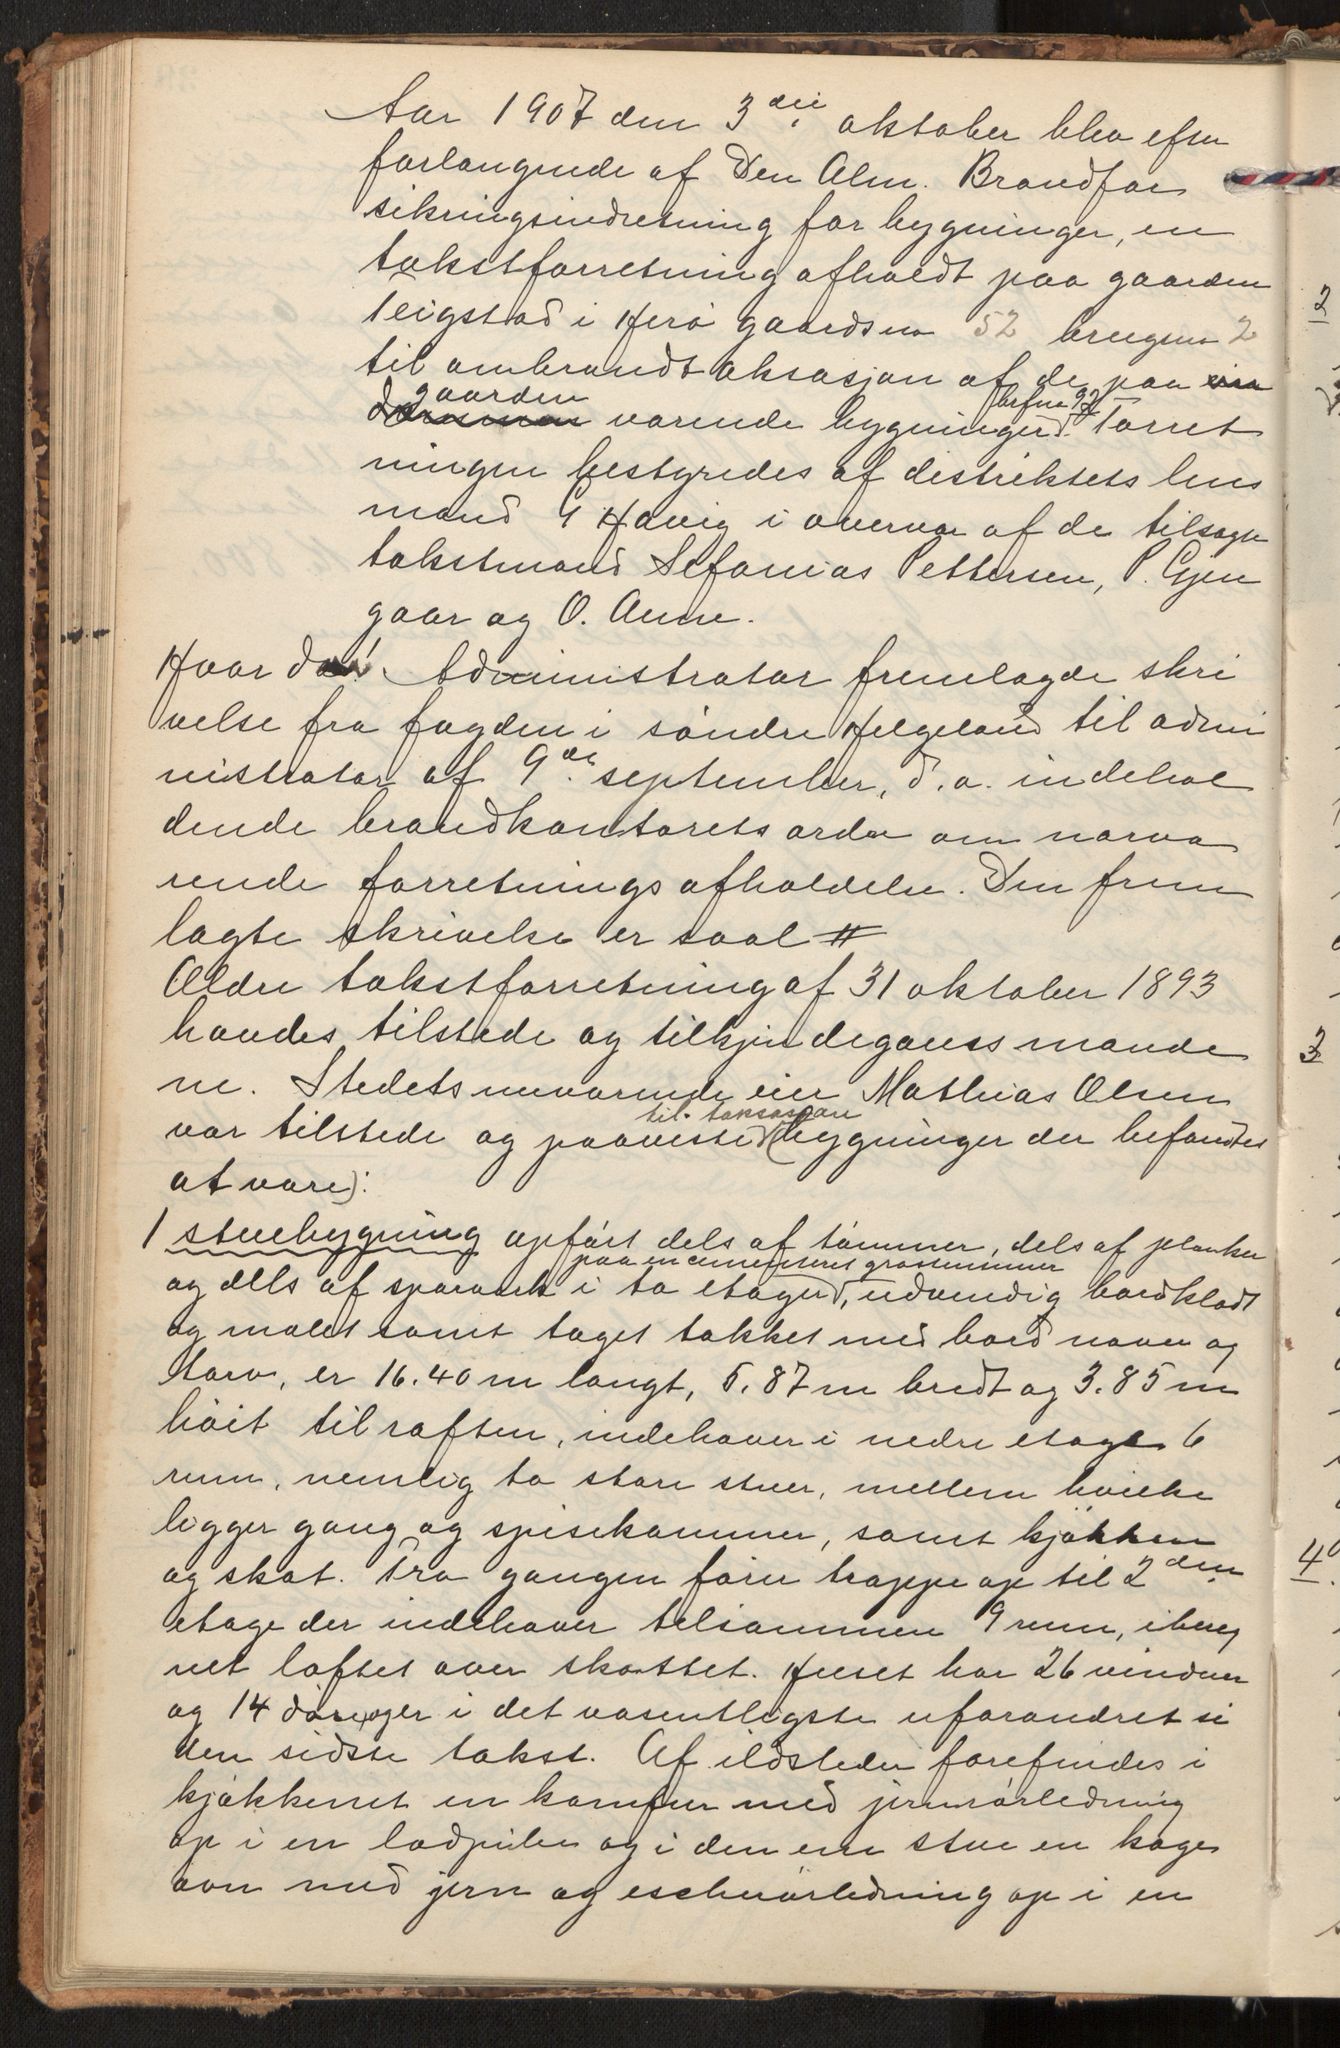 Aar 1907 den 3die oktober blev efter
forlangende af Den Alm. Brandfor
sikringsindretning for bygninger, en
takstforretning afholdt paa gaarden
Teigstad i Herø gaardsno 52 brugsno 2
til ombrandtaksasjon af de paa
gaarden værende bygninger. Forret
ningen bestyredes af distriktets lens
mand G Havig i overvær af de tilsagte
takstmænd Sefanias Pettersen, P. Gjen
gaar og O. Aune.
Hvor da! Administrator fremlagde skri
velse fra fogden i søndre Helgeland til admi
nistrator af 9de september d.a. indehol
dende brandkontorets order om nærvæ
rende forretnings afholdelse. Den frem
lagte skrivelse er saal #
Ældre takstforretning af 31 oktober 1893
havdes tilstede og tilkjendegaves mænde
ne. Stedets nuværende eier Mathias Olsen
til taksasjon
var tilstede og paaviste bygninger der befandtes
at være):
1 stuebygning opført dels af tømmer, dels af planker
paa en cementeret graastensmur
og dels af sparværk i to etager, udvendig bordklædt
og malet samt taget tækket med bord næver og
torv, er 16.40 m langt, 5.87 m bredt og 3.85 m
høit til raften, indehaver i nedre etage 6
rum, nemlig to store stuer, mellem hvilke
ligger gang og spisekammer, samt kjøkken
og skot. Fra gangen fører trappe op til 2den
etage der indehaver tilsammen 9 rum, ibereg
net loftet over skottet. Huset har 26 vinduer
og 14 døre, og er i det væsentligste uforandret si
den sidste takst. Af ildsteder forefindes i
kjøkkenet en komfur med jernrørledning
op i en lodpibe og i den ene stue en kage
ovn med jern og eschurørledning op i en